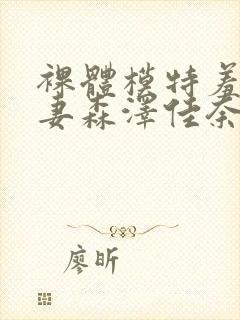 裸體模特羞
妻森澤佳奈
廖昕